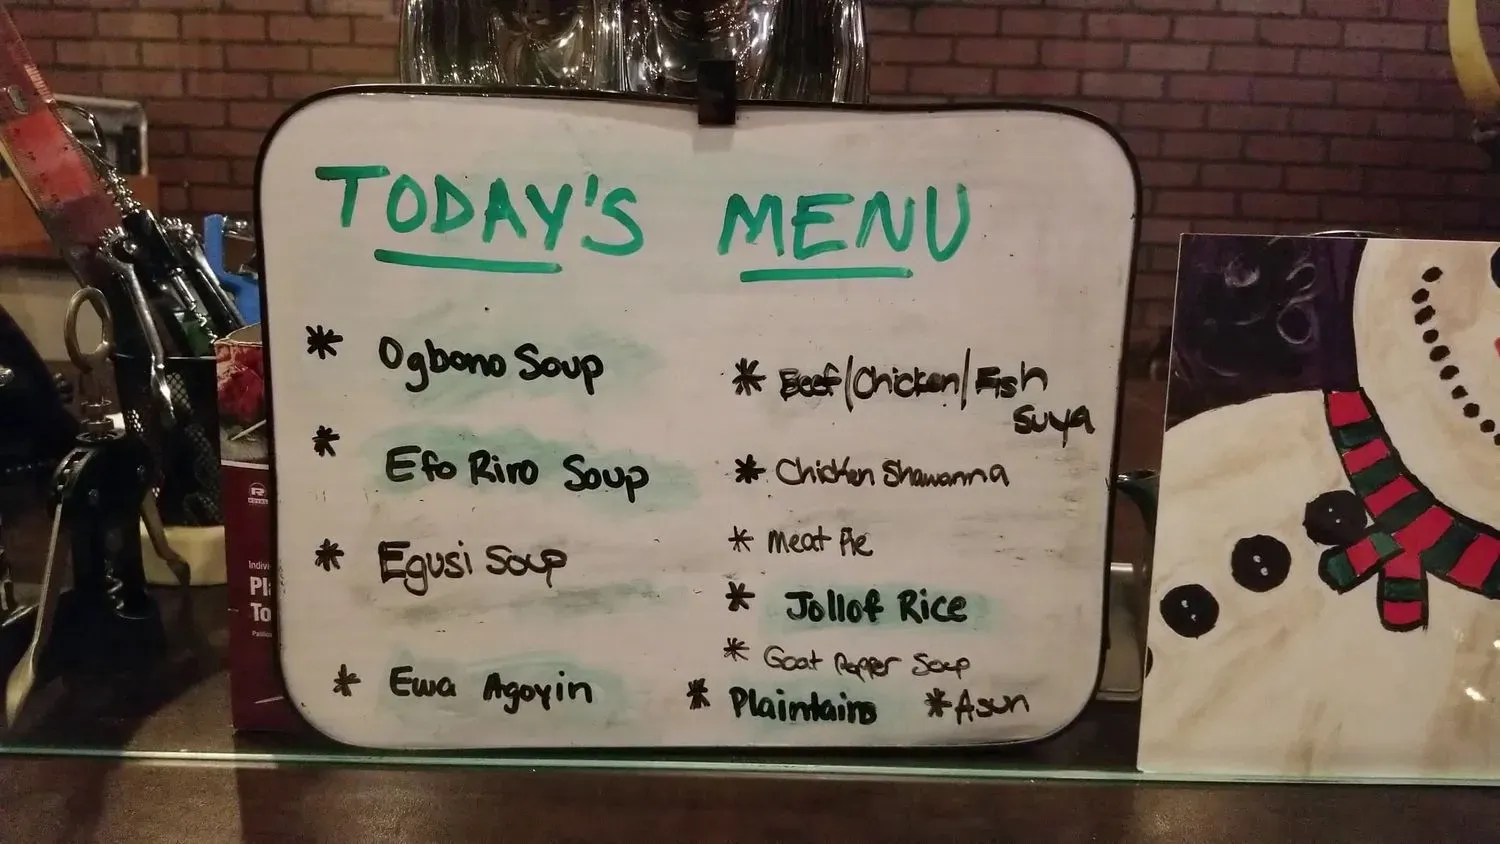 TODAY'S MENU
* Ogbono Soup
* Efo Riro Soup
* Egusi Soup
* Ewa Agoyin
* Beef/Chicken/Fish
Suya
* Chicken Shawarma
* Meat Pie
* Jollof Rice
* Goat Pepper Soup
* Plaintains
* Asun
R